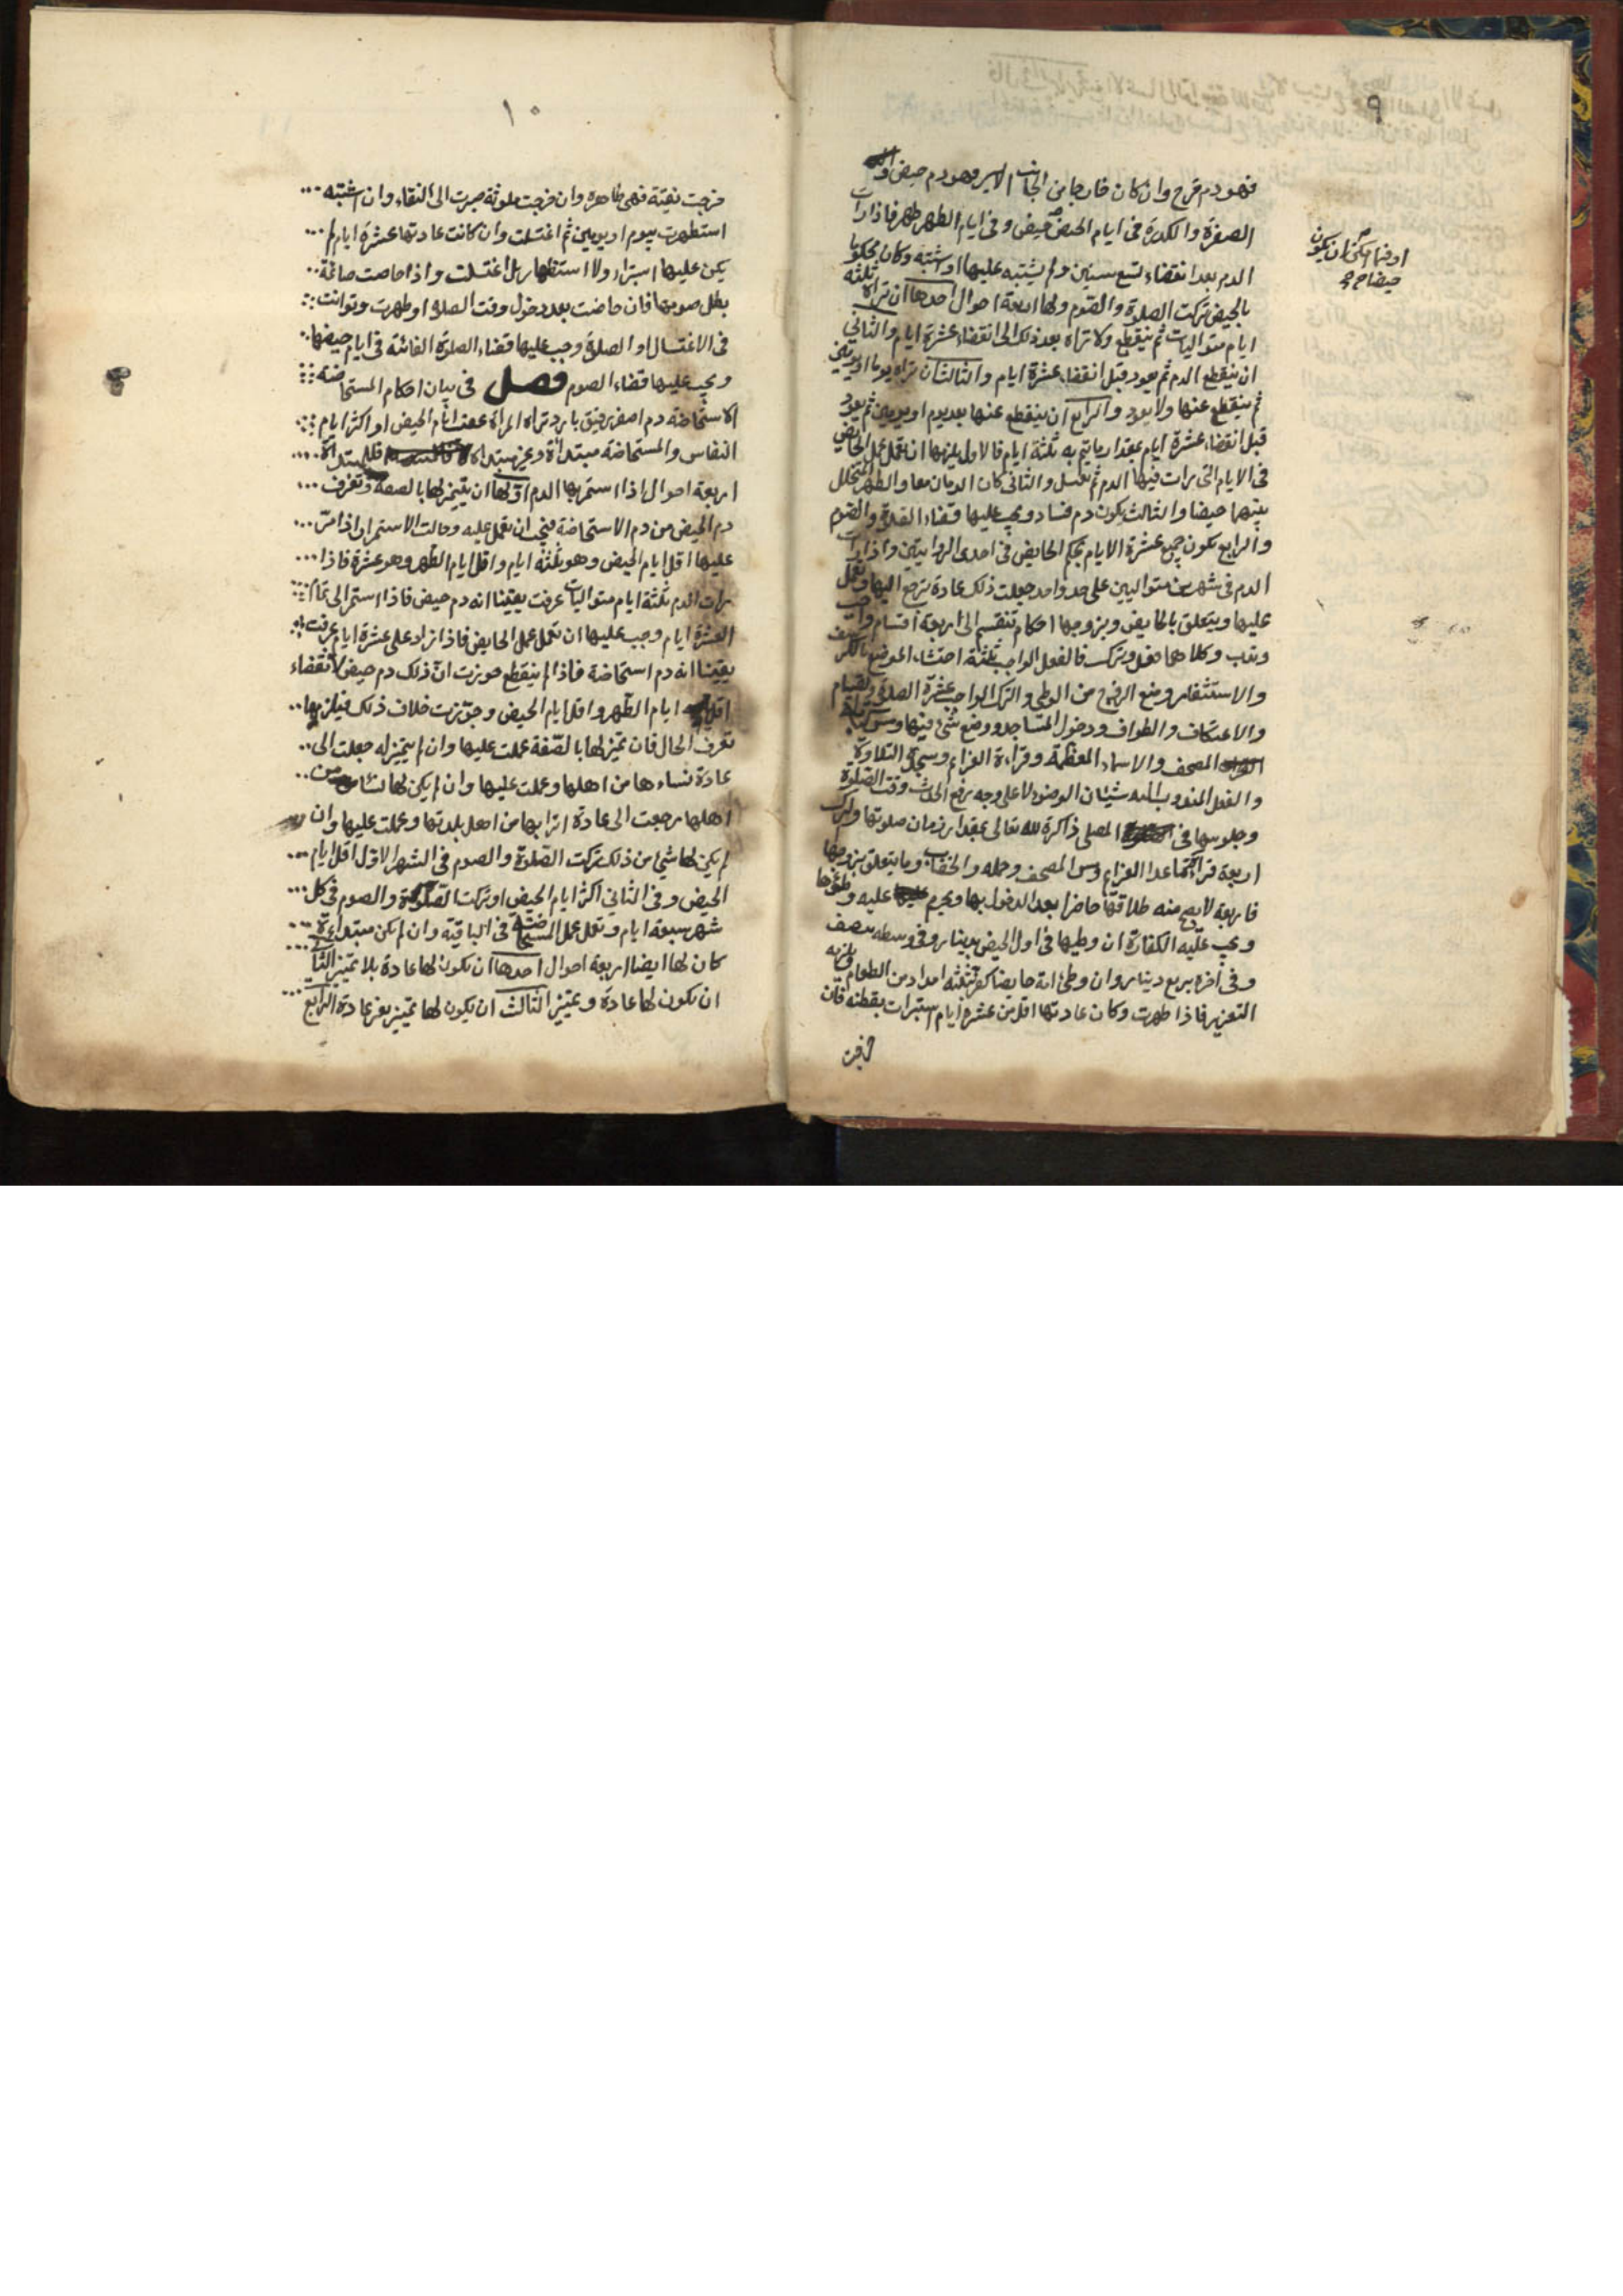 ٩
فهو دم قرح وان كان خارجا من الجانب الايسر فهو دم حيض و
الصفرة والكدرة في ايام الحيض حيض وفي ايام الطهر طهر فاذا رات
الدم بعد انقضاء تسع سنين ولم يشتبه عليها او اشتبه وكان محكوما
بالحيض تركت الصلوة والصوم ولها اربعة احوال احدها ان تراه ثلثة
ايام متواليات ثم ينقطع ولا تراه بعد ذلك الى انقضاء عشرة ايام والثاني
ان ينقطع الدم ثم يعود قبل انقضاء عشرة ايام والثالث ان تراه يوما او يومين
ثم ينقطع عنها ولا يعود والرابع ان ينقطع عنها بعد يوم او يومين ثم يعود
قبل انقضاء عشرة ايام بمقدار ما يتم به ثلثة ايام فالاول يلزمها ان تعمل عمل الحايض
في الايام التي رات فيها الدم ثم تغسل والثاني كان الدمان معا والطهر المتخلل
بينهما حيضا والثالث يكون دم فساد ويجب عليها قضاء الصلوة والصوم
والرابع يكون جميع عشرة الايام بحكم الحايض في احدى الروايتين واذا رات
الدم في شهرين متواليين على حد واحد جعلت ذلك عادة ترجع اليها وتعمل
عليها ويتعلق بالحايض وبزوجها احكام تنقسم الى اربعة اقسام واجب
وندب وكلاهما فعل وترك فالفعل الواجب ثلثة احتشاء الموضع بالكرسف
والاستثفار ومنع الزوج من الوطي والترك الواجب عشرة الصلوة والصيام
والاعتكاف والطواف ودخول المساجد ووضع شئ فيها ومس كتابة
المصحف والاسماء المعظمة وقراءة العزائم وسجدة التلاوة
والفعل المندوب اليه شيئان الوضوء لا على وجه يرفع الحدث وقت الصلوة
وجلوسها في المصلى ذاكرة لله تعالى بمقدار زمان صلوتها والترك
اربعة قراءة ما عدا العزائم ومس المصحف وحمله والخضاب وما يتعلق بزوجها
فاربعة لا يصح منه طلاقها حاضرا بعد الدخول بها ويحرم عليه وطؤها
ويجب عليه الكفارة ان وطيها في اول الحيض بدينار وفي وسطه بنصف
وفي آخره بربع دينار وان وطئ امة حايضا كفر بثلثة امداد من الطعام ويلزمه
التعزير فاذا طهرت وكان عادتها اقل من عشرة ايام استبرات بقطنة فان
خرجت
او فيما امكن ان يكون
حيضا
١٠
خرجت نقية فهي طاهرة وان خرجت ملوثة صبرت الى النقاء وان اشتبه
استظهرت بيوم او يومين ثم اغتسلت وان كانت عادتها عشرة ايام لم
يكن عليها استبراء ولا استظهار بل اغتسلت واذا حاضت صائمة
بطل صومها فان حاضت بعد دخول وقت الصلوة او طهرت وتوانت
في الاغتسال او الصلوة وجب عليها قضاء الصلوة الفائتة في ايام حيضها
ويجب عليها قضاء الصوم فصل في بيان احكام المستحاضة
الاستحاضة دم اصفر رقيق بارد تراه المراة عقيب ايام الحيض او اكثر ايام
النفاس والمستحاضة مبتداة وغير مبتداة فللمبتداة
اربعة احوال اذا استمر بها الدم اولها ان يتميز لها بالصفة وتعرف
دم الحيض من دم الاستحاضة فيجب ان تعمل عليه وحالت الاستمرار اذا مر
عليها اقل ايام الحيض وهو ثلثة ايام واقل ايام الطهر وهو عشرة فاذا
رات الدم ثلثة ايام متواليات عرفت يقينا انه دم حيض فاذا استمر الى تمام
العشرة ايام وجب عليها ان تعمل عمل الحايض فاذا زاد على عشرة ايام عرفت
يقينا انه دم استحاضة فاذا لم ينقطع جوزت ان ذلك دم حيض لانقضاء
اقل ايام الطهر واقل ايام الحيض وجوزت خلاف ذلك فيلزمها
تعرف الحال فان تميز لها بالصفة عملت عليها وان لم يتميز له جعلت الى
عادة نساءها من اهلها وعملت عليها وان لم يكن لها نساء من
اهلها رجعت الى عادة اترابها من اهل بلدتها وعملت عليها وان
لم يكن لها شئ من ذلك تركت الصلوة والصوم في الشهر الاول اقل ايام
الحيض وفي الثاني اكثر ايام الحيض او تركت الصلوة والصوم في كل
شهر سبعة ايام وتعمل عمل المستحاضة في الباقية وان لم يكن مبتداءة
كان لها ايضا اربعة احوال احدها ان يكون لها عادة بلا تميز الثاني
ان يكون لها عادة وتميز الثالث ان يكون لها تميز بغير عادة الرابع